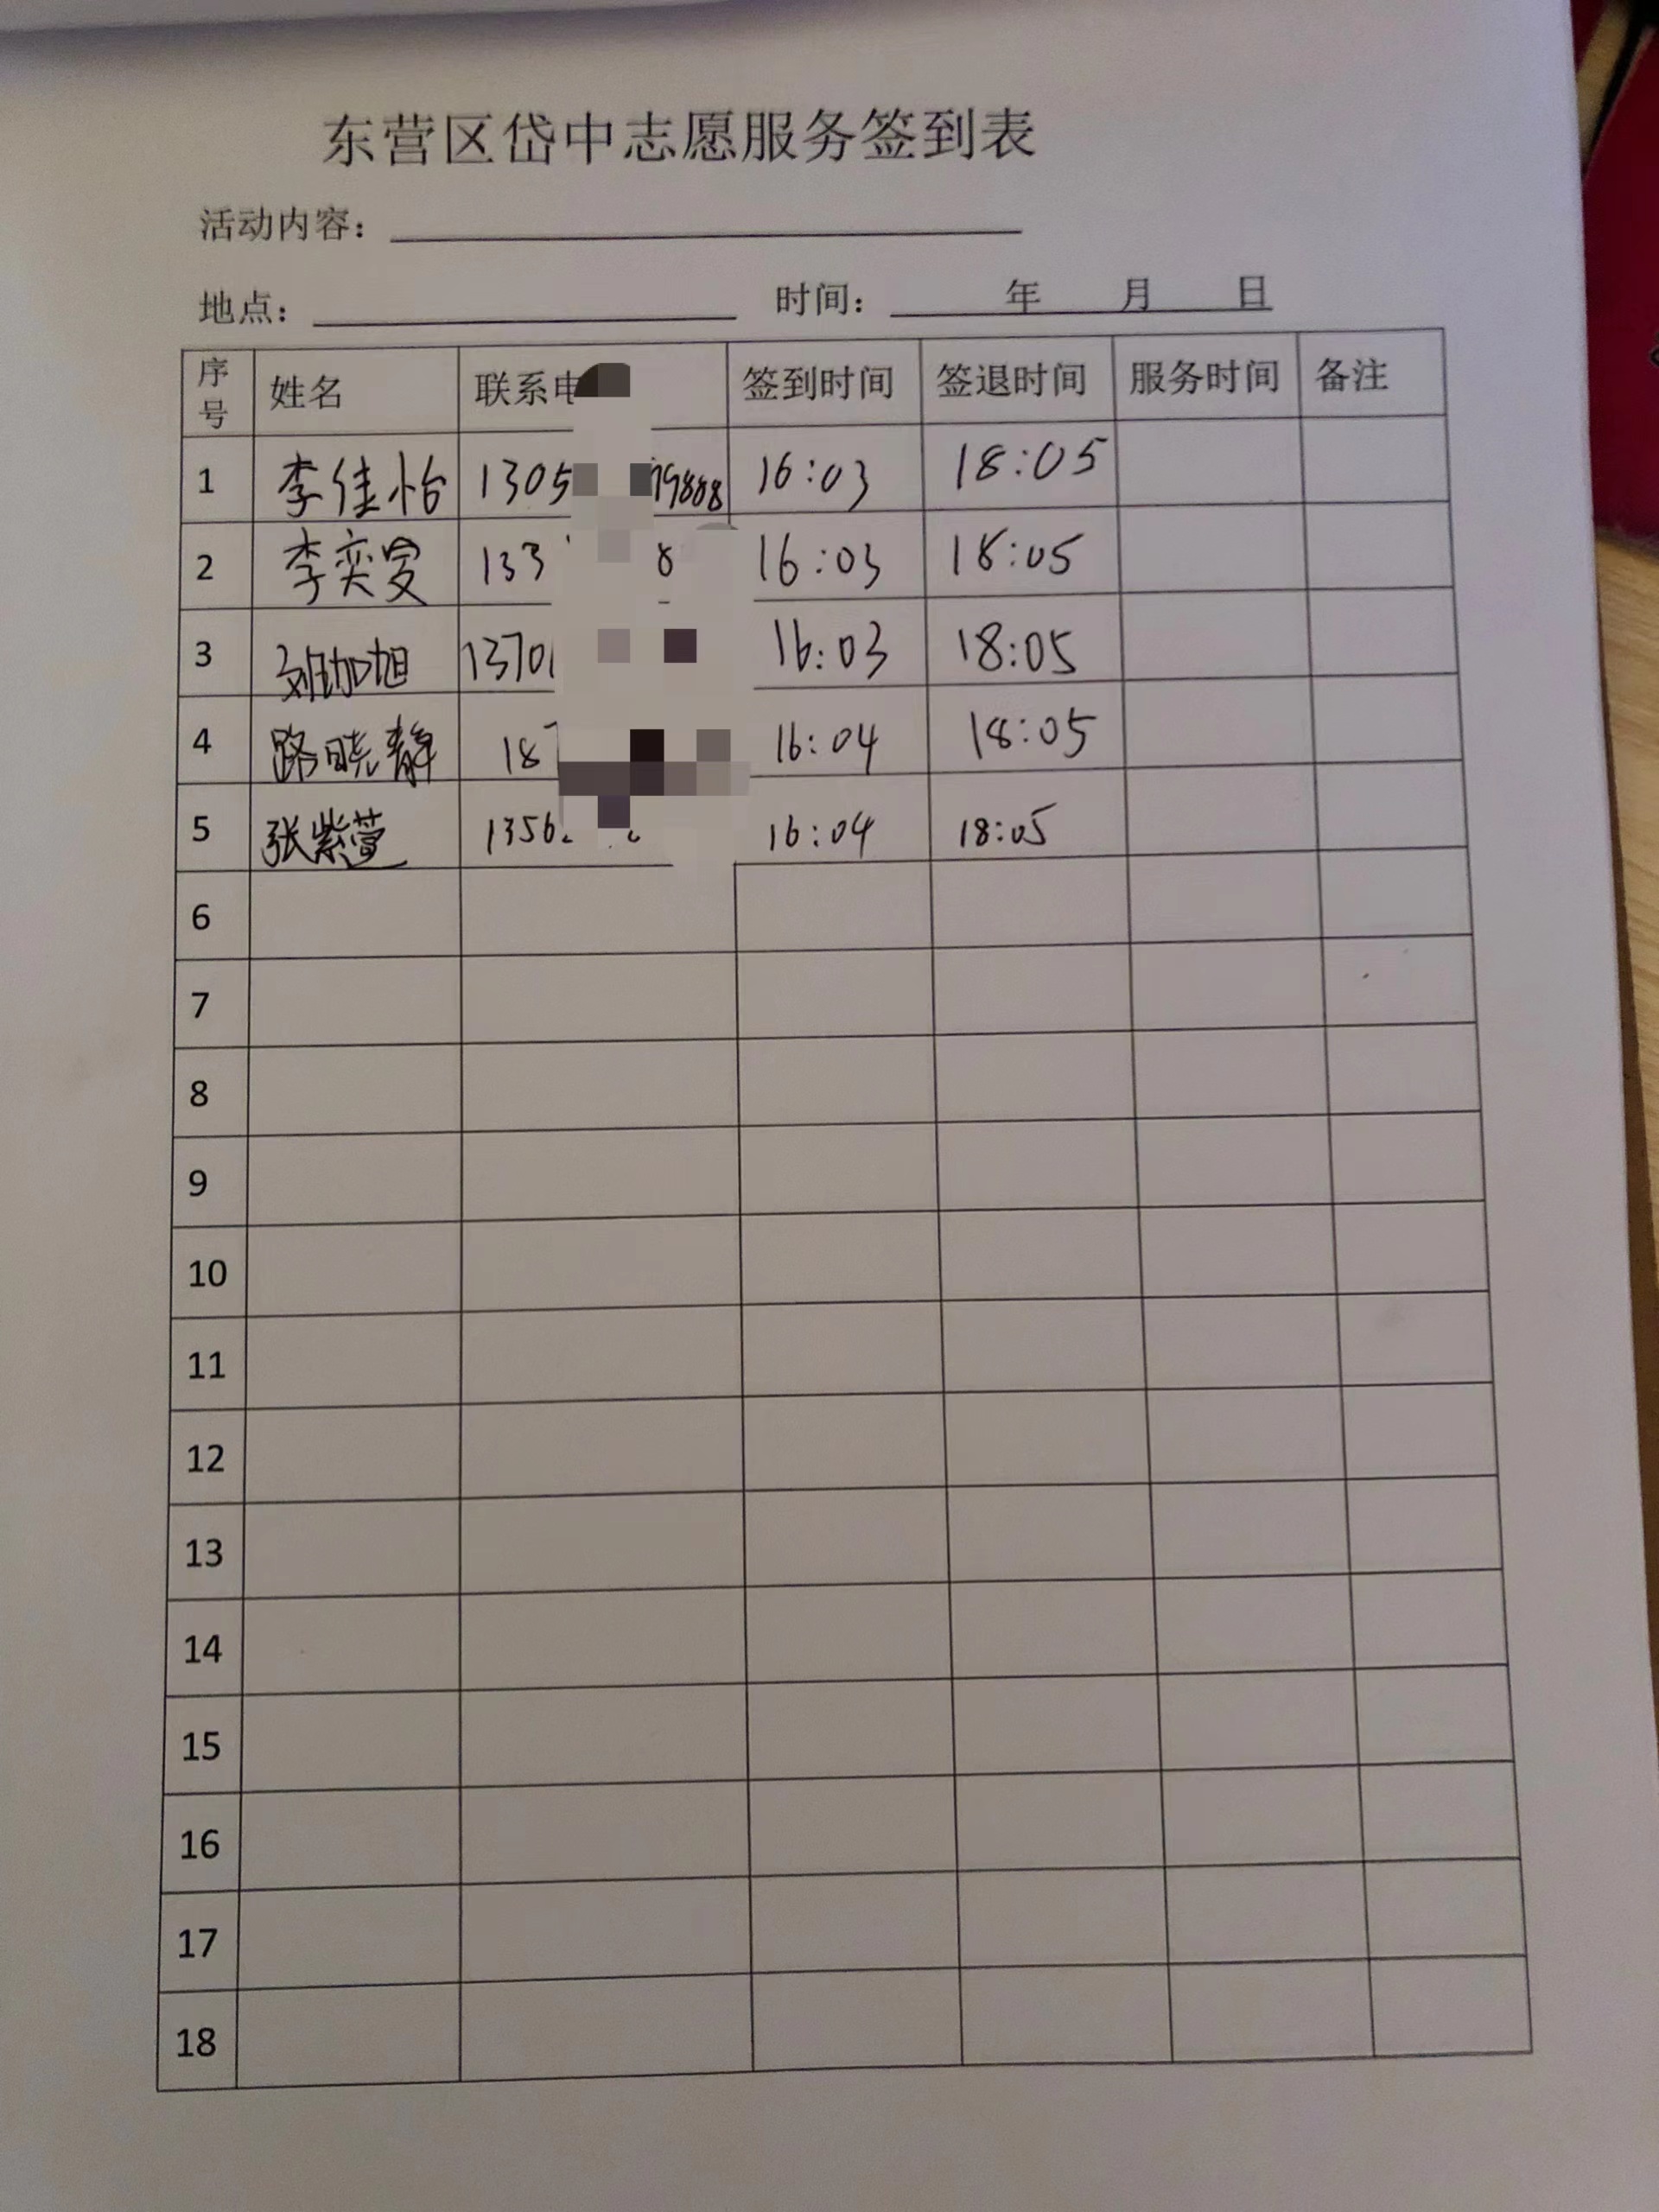 东营区岱中志愿服务签到表
活动内容：
地点： 时间： 年 月 日
序号 姓名 联系电 签到时间 签退时间 服务时间 备注
1 李佳怡 1305 79888 16:03 18:05
2 李奕 133 8 16:03 18:05
3 刘加旭 1370 16:03 18:05
4 路晓静 18 16:04 18:05
5 张紫萱 1356 16:04 18:05
6
7
8
9
10
11
12
13
14
15
16
17
18